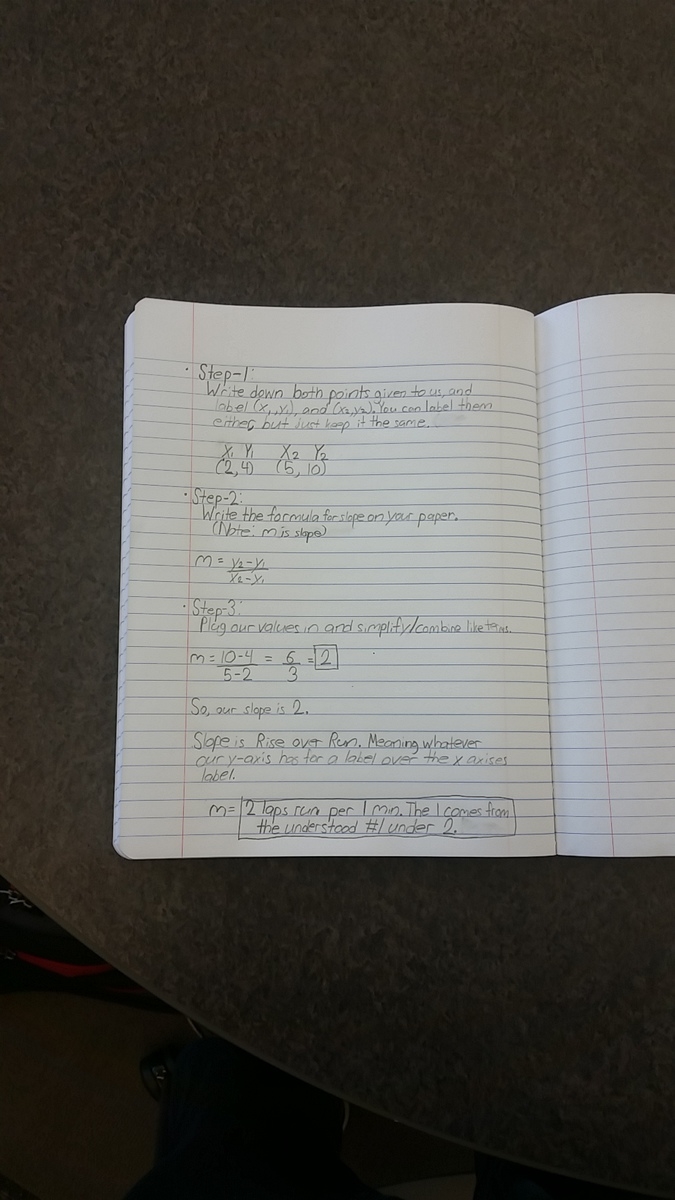 · Step-1:
Write down both points given to us, and
label (x₁,y₁), and (x₂,y₂). You can label them
either, but just keep it the same.
X₁ Y₁ X₂ Y₂
(2,4) (5,10)
· Step-2:
Write the formula for slope on your paper.
(Note: m is slope)
m = y₂-y₁
x₂-y₁
· Step-3:
Plug our values in and simplify/combine like terms.
m = 10-4 = 6 = 2
5-2 3
So, our slope is 2.
Slope is Rise over Run. Meaning whatever
our y-axis has for a label over the x axises
label.
m = 2 laps run per 1 min. The 1 comes from
the understood #1 under 2.